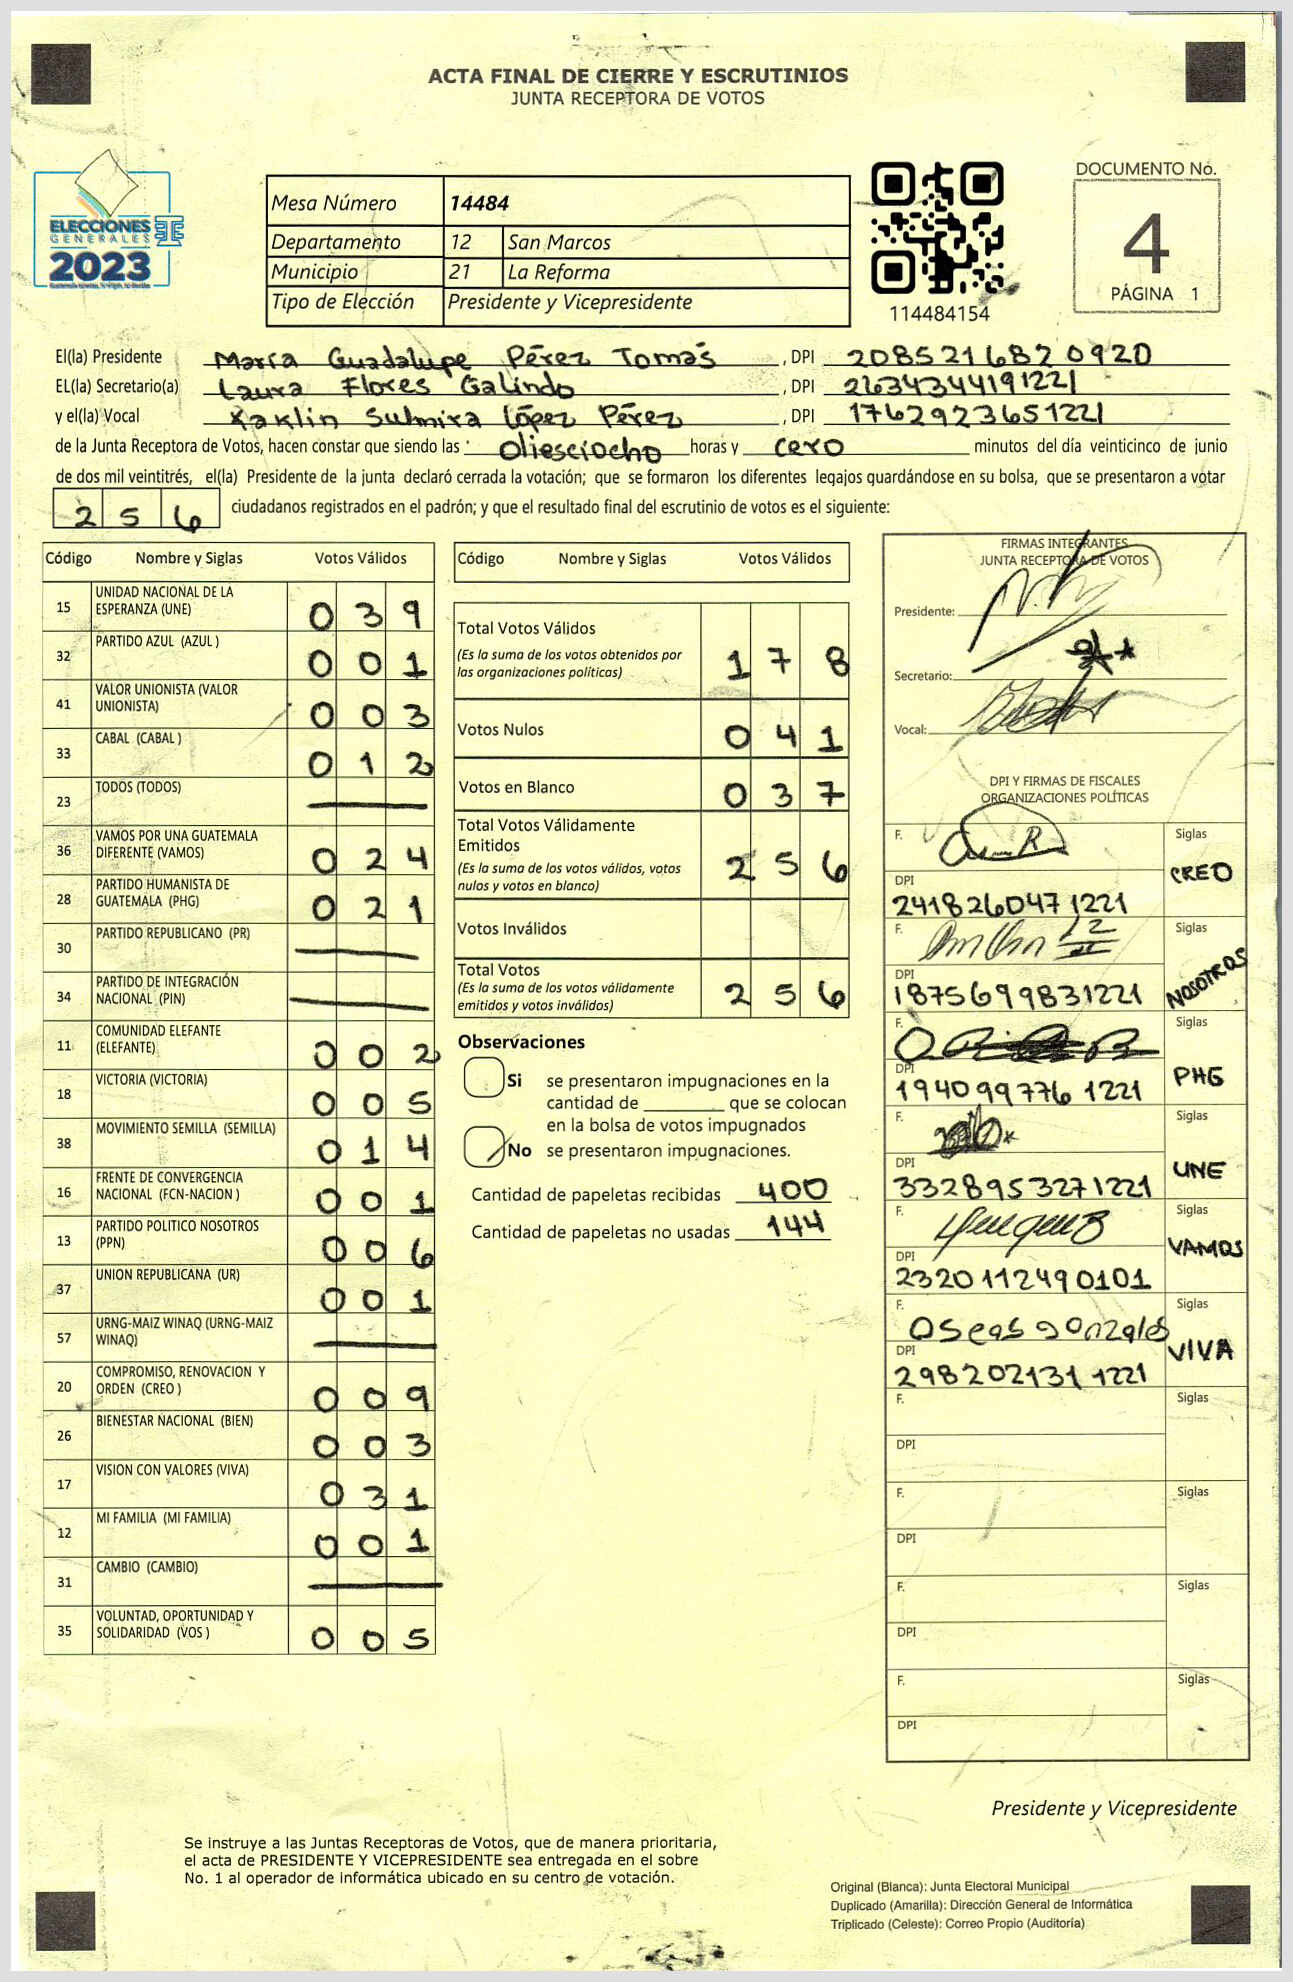 ACTA FINAL DE CIERRE Y ESCRUTINIOS
JUNTA RECEPTORA DE VOTOS
ELECCIONES
GENERALES
2023
Mesa Número 14484
Departamento 12 San Marcos
Municipio 21 La Reforma
Tipo de Elección Presidente y Vicepresidente
114484154
DOCUMENTO No.
4
PÁGINA 1
El(la) Presidente María Guadalupe Pérez Tomás , DPI 2085216820920
EL(la) Secretario(a) Laura Flores Galindo , DPI 2634344191221
y el(la) Vocal Kaklin Sulmira López Pérez , DPI 1762923651221
de la Junta Receptora de Votos, hacen constar que siendo las Diesciocho horas y cero minutos del día veinticinco de junio
de dos mil veintitrés, el(la) Presidente de la junta declaró cerrada la votación; que se formaron los diferentes legajos guardándose en su bolsa, que se presentaron a votar
256 ciudadanos registrados en el padrón; y que el resultado final del escrutinio de votos es el siguiente:
Código Nombre y Siglas Votos Válidos
15 UNIDAD NACIONAL DE LA ESPERANZA (UNE) 039
32 PARTIDO AZUL (AZUL ) 001
41 VALOR UNIONISTA (VALOR UNIONISTA) 003
33 CABAL (CABAL ) 012
23 TODOS (TODOS)
36 VAMOS POR UNA GUATEMALA DIFERENTE (VAMOS) 024
28 PARTIDO HUMANISTA DE GUATEMALA (PHG) 021
30 PARTIDO REPUBLICANO (PR)
34 PARTIDO DE INTEGRACIÓN NACIONAL (PIN)
11 COMUNIDAD ELEFANTE (ELEFANTE) 002
18 VICTORIA (VICTORIA) 005
38 MOVIMIENTO SEMILLA (SEMILLA) 014
16 FRENTE DE CONVERGENCIA NACIONAL (FCN-NACION ) 001
13 PARTIDO POLITICO NOSOTROS (PPN) 006
37 UNION REPUBLICANA (UR) 001
57 URNG-MAIZ WINAQ (URNG-MAIZ WINAQ)
20 COMPROMISO, RENOVACION Y ORDEN (CREO ) 009
26 BIENESTAR NACIONAL (BIEN) 003
17 VISION CON VALORES (VIVA) 031
12 MI FAMILIA (MI FAMILIA) 001
31 CAMBIO (CAMBIO)
35 VOLUNTAD, OPORTUNIDAD Y SOLIDARIDAD (VOS ) 005
Código Nombre y Siglas Votos Válidos
Total Votos Válidos 178
(Es la suma de los votos obtenidos por
las organizaciones políticas)
Votos Nulos 041
Votos en Blanco 037
Total Votos Válidamente
Emitidos 256
(Es la suma de los votos válidos, votos
nulos y votos en blanco)
Votos Inválidos
Total Votos 256
(Es la suma de los votos válidamente
emitidos y votos inválidos)
Observaciones
Si se presentaron impugnaciones en la
cantidad de ________ que se colocan
en la bolsa de votos impugnados
No se presentaron impugnaciones.
Cantidad de papeletas recibidas 400
Cantidad de papeletas no usadas 144
FIRMAS INTEGRANTES
JUNTA RECEPTORA DE VOTOS
Presidente:
Secretario:
Vocal:
DPI Y FIRMAS DE FISCALES
ORGANIZACIONES POLÍTICAS
F. Siglas
CREO
DPI
2418260471221
F. Siglas
NOSOTROS
DPI
1875699831221
F. Siglas
PHG
DPI
1940997761221
F. Siglas
UNE
DPI
3328953271221
F. Siglas
VAMOS
DPI
2320112490101
F. Oseas Gonzales Siglas
VIVA
DPI
2982021311221
F. Siglas
DPI
F. Siglas
DPI
F. Siglas
DPI
F. Siglas
DPI
Presidente y Vicepresidente
Se instruye a las Juntas Receptoras de Votos, que de manera prioritaria,
el acta de PRESIDENTE Y VICEPRESIDENTE sea entregada en el sobre
No. 1 al operador de informática ubicado en su centro de votación.
Original (Blanca): Junta Electoral Municipal
Duplicado (Amarilla): Dirección General de Informática
Triplicado (Celeste): Correo Propio (Auditoría)